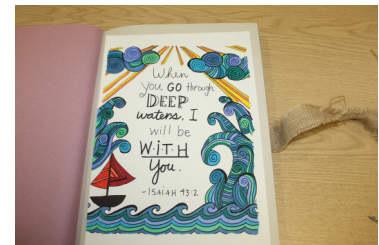 When
you GO through
DEEP
waters, I
will be
WiTH
You.
-ISAIAH 43:2